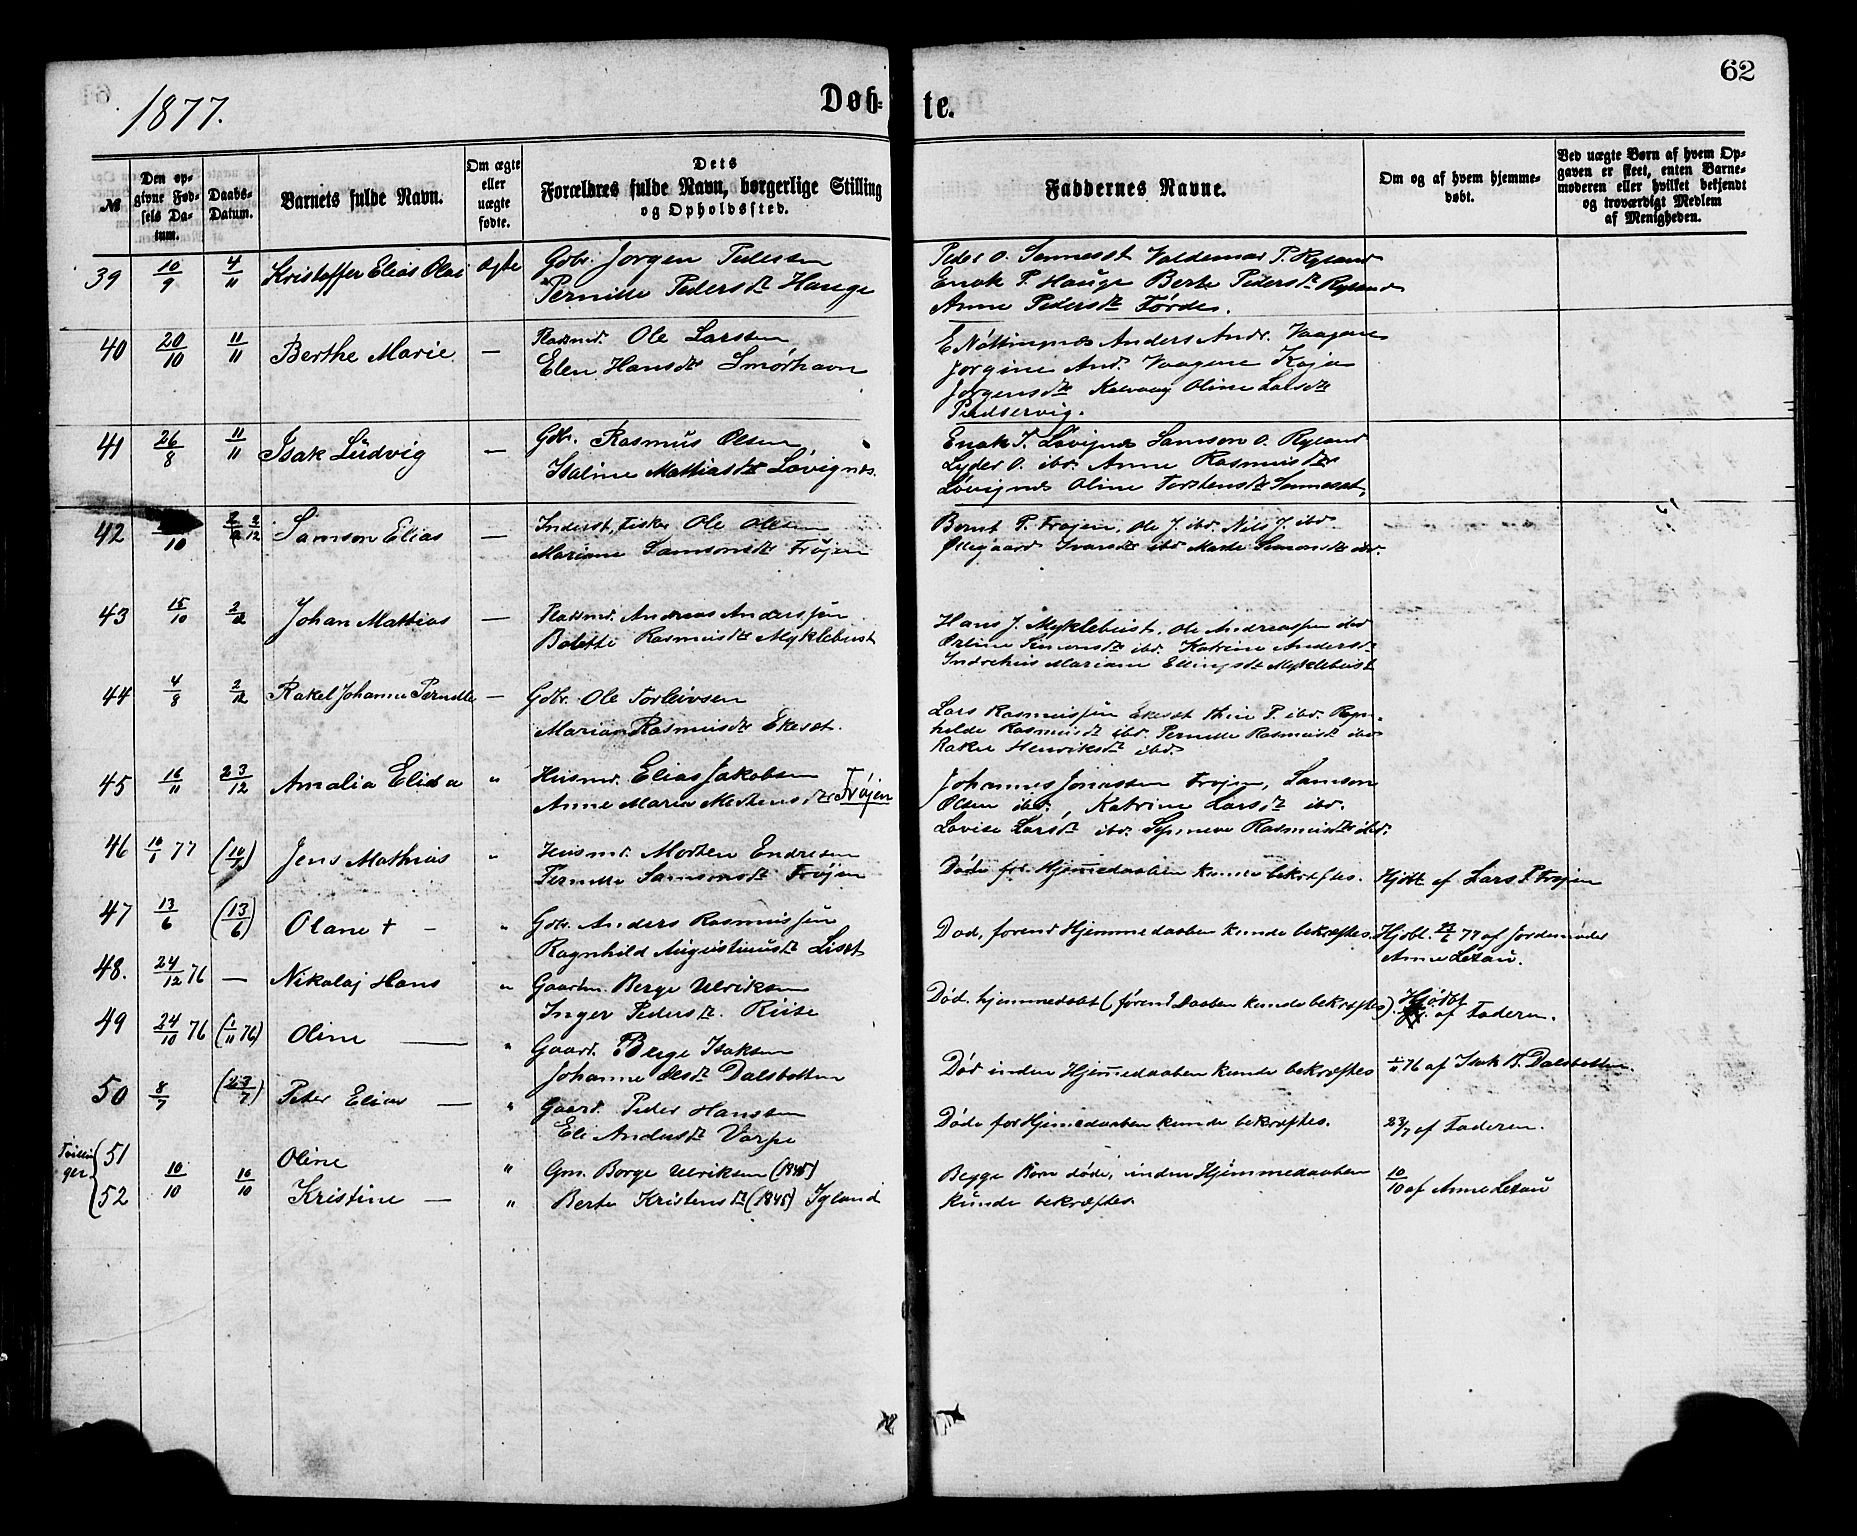 1877. Døb-te. 62
№ Den opgivne Fødsels Datum. Daabs-Datum. Barnets fulde Navn. Om ægte eller uægte fødte. Dets Forældres fulde Navn, borgerlige Stilling og Opholdssted. Faddernes Navne. Om og af hvem hjemmedøbt. Ved uægte Børn af hvem Opgaven er skeet, enten Barnemoderen eller hvilket bekjendt og troværdigt Medlem af Menigheden.
39 10/9 4/11 Kristoffer Elias Olai Ægte Gbr. Jørgen Pedersen
Pernille Pedersdtr Hauge
Peder O. Sennesst Valdemar P. Ryland
Enok P. Hauge Berte Pedersdtr Ryland
Anne Pedersdtr Førde.
40 20/10 11/11 Berthe Marie — Pladsmd. Ole Larssen
Elen Hansdtr Smørhavn
Anders Andr. Vaagene
Jørgine And. Vaagene Kaja
Jørgensdtr Kalvaag Oline Larsdtr
41 26/8 11/11 Isak Ludvig — Gbr. Rasmus Olsen
Italine Mathiasdtr Løvignes.
Enok T. Løvignes Samson O. Ryland
Lyder O. ibd. Anne Rasmusdtr
Løvignes Oline Torstensdtr Sennesst,
42 /10 2/12 Samson Elias — Inderst, Fisker Ole Olsen
Mariane Samsonsdtr Frøjen
Bernt P. Frøjen, Ole J. ibd. Nils J. ibd.
Ollegaard Ivarsdtr ibd Marte Simonsdtr ibd.
43 15/10 2/12 Johan Mathias — Pladsmd. Andreas Anderssen
Bolette Rasmusdtr Myklebust
Hans J. Myklebust, Ole Andreassen ibd
Simonsdtr ibd. Katrine Andersd
Indrehus Mariane Ellingsdtr Myklebust
44 4/8 2/12 Rakel Johanne Pernille — Gbr. Ole Torleivsen
Mariane Rasmusdtr Ekeset.
Lars Rasmussen Ekeset P. ibd. Ragnhilde Rasmusdtr ibd. Pernille Rasmusdtr ibd
Rakel Henriksdtr ibd.
45 16/11 23/12 Amalia Elisa " Husmd. Elias Jakobsen
Anne Maria Mortensdtr Frøjen
Johannes Jonassen Frøjen, Samson
Olsen ibd., Katrine Larsdtr ibd.
Lovise Larsdtr ibd. Synneve Rasmusdtr ibd.
46 10/6 77 (10/7) Jens Mathias " Husmd. Morten Endresen
Pernille Samsonsdtr Frøjen
Døde før Hjemmedaaben kunde bekræftes. Hjdbt af Lars P. Frøjen
47 13/6 (13/6) Olane + — " Gbr. Anders Rasmussen
Ragnhild Augustinusdtr Liset
Død, førend Hjemmedaaben kunde bekræftes. Hjdbt. 77 af Jordemoder
Anne Lesau.
48. 24/12 76 — Nikolaj Hans " Gaardm. Berge Ulriksen
Inger Pedersdtr. Riise
Død hjemmedøbt (førend Daaben kunde bekræftes). Hjdbt
af Faderen.
49 24/10 76 (1/11 76) Oline — " Gaard. Berge Isaksen
Johanne Olsdtr Dalsbotten
Død inden Hjemmedaaben kunde bekræftes 1/11 76 af Isak B. Dalsbotten.
50 8/7 (23/7) Peter Elias — " Gaard. Peder Hanssen
Eli Andersdtr Varpe
Døde før Hjemedaaben kunde bekræftes. 23/7 af Faderen.
Tvillinger 51 10/10 10/10 Oline " Gm. Børge Ulriksen (1845)
52 Kristine — " Berte Kristensdtr (1845) Igland
Begge Børn døde, inden Hjemmedaaben 10/10 af Anne Lesau
kunde bekræftes.